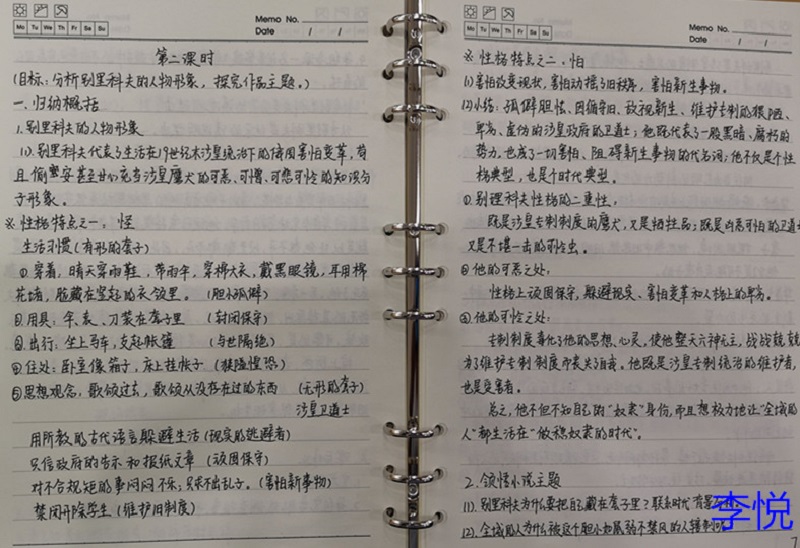 Memo No.
Mo Tu We Th Fr Sa Su
Date / /
第二课时
(目标:分析别里科夫的人物形象,探究作品主题。)
一.归纳概括
1.别里科夫的人物形象
(1).别里科夫代表了生活在19世纪末沙皇统治下的
害怕变革,苟
且偷安甚至甘心充当沙皇鹰犬的可恶、可憎、可悲可怜的知识分
子形象。
※ 性格特点之一:怪
生活习惯(有形的套子)
①穿着,晴天穿雨鞋,带雨伞,穿棉大衣,戴黑眼镜,耳用棉
花堵,脸藏在竖起的衣领里。(胆小孤僻)
②用具:伞、表、刀装在套子里 (封闭保守)
③出行:坐上马车,支起帐篷 (与世隔绝)
④住处:卧室像箱子,床上挂帐子
⑤思想观念,歌颂过去,歌颂从没存在过的东西 (无形的套子)
沙皇卫道士
用所教的古代语言躲避生活(现实的逃避者)
只信政府的告示和报纸文章 (顽固保守)
对不合规矩的事闷闷不乐;只求不出乱子。(害怕新事物)
禁闭开除学生(维护旧制度)
Memo No.
Mo Tu We Th Fr Sa Su
Date / /
※ 性格特点之二.怕
(1)害怕改变现状,害怕动摇了旧秩序,害怕新生事物。
(2)小结:孤僻胆怯、因循守旧、敌视新生、维护专制的猥陋、
卑劣、虚伪的沙皇政府的卫道士;他既代表了一股黑暗、腐朽的
势力,也成了一切害怕、阻碍新生事物的代名词;他不仅是个性
格典型,也是个时代典型。
①.别理科夫性格的二重性,
既是沙皇专制制度的鹰犬,又是牺牲品;既是凶恶可怕的卫道士
又是不堪一击的可怜虫。
②他的可恶之处:
性格上顽固保守,躲避现实、害怕变革和人格上的卑劣。
③.他的可怜之处:
专制制度毒化了他的思想、心灵,使他整天六神无主,战战兢兢
为了维护专制制度而丧失了自我。他既是沙皇专制统治的维护者,
也是受害者。
总之,他不但不知自己的“奴隶”身份,而且想极力地让“全城的
人”都生活在“做稳奴隶的时代”。
2.领悟小说主题
(1).别里科夫为什么要把自己藏在套子里?联系时代
(2).全城的人为什么被这个胆小如鼠弱不禁风的人辖制
李悦
7